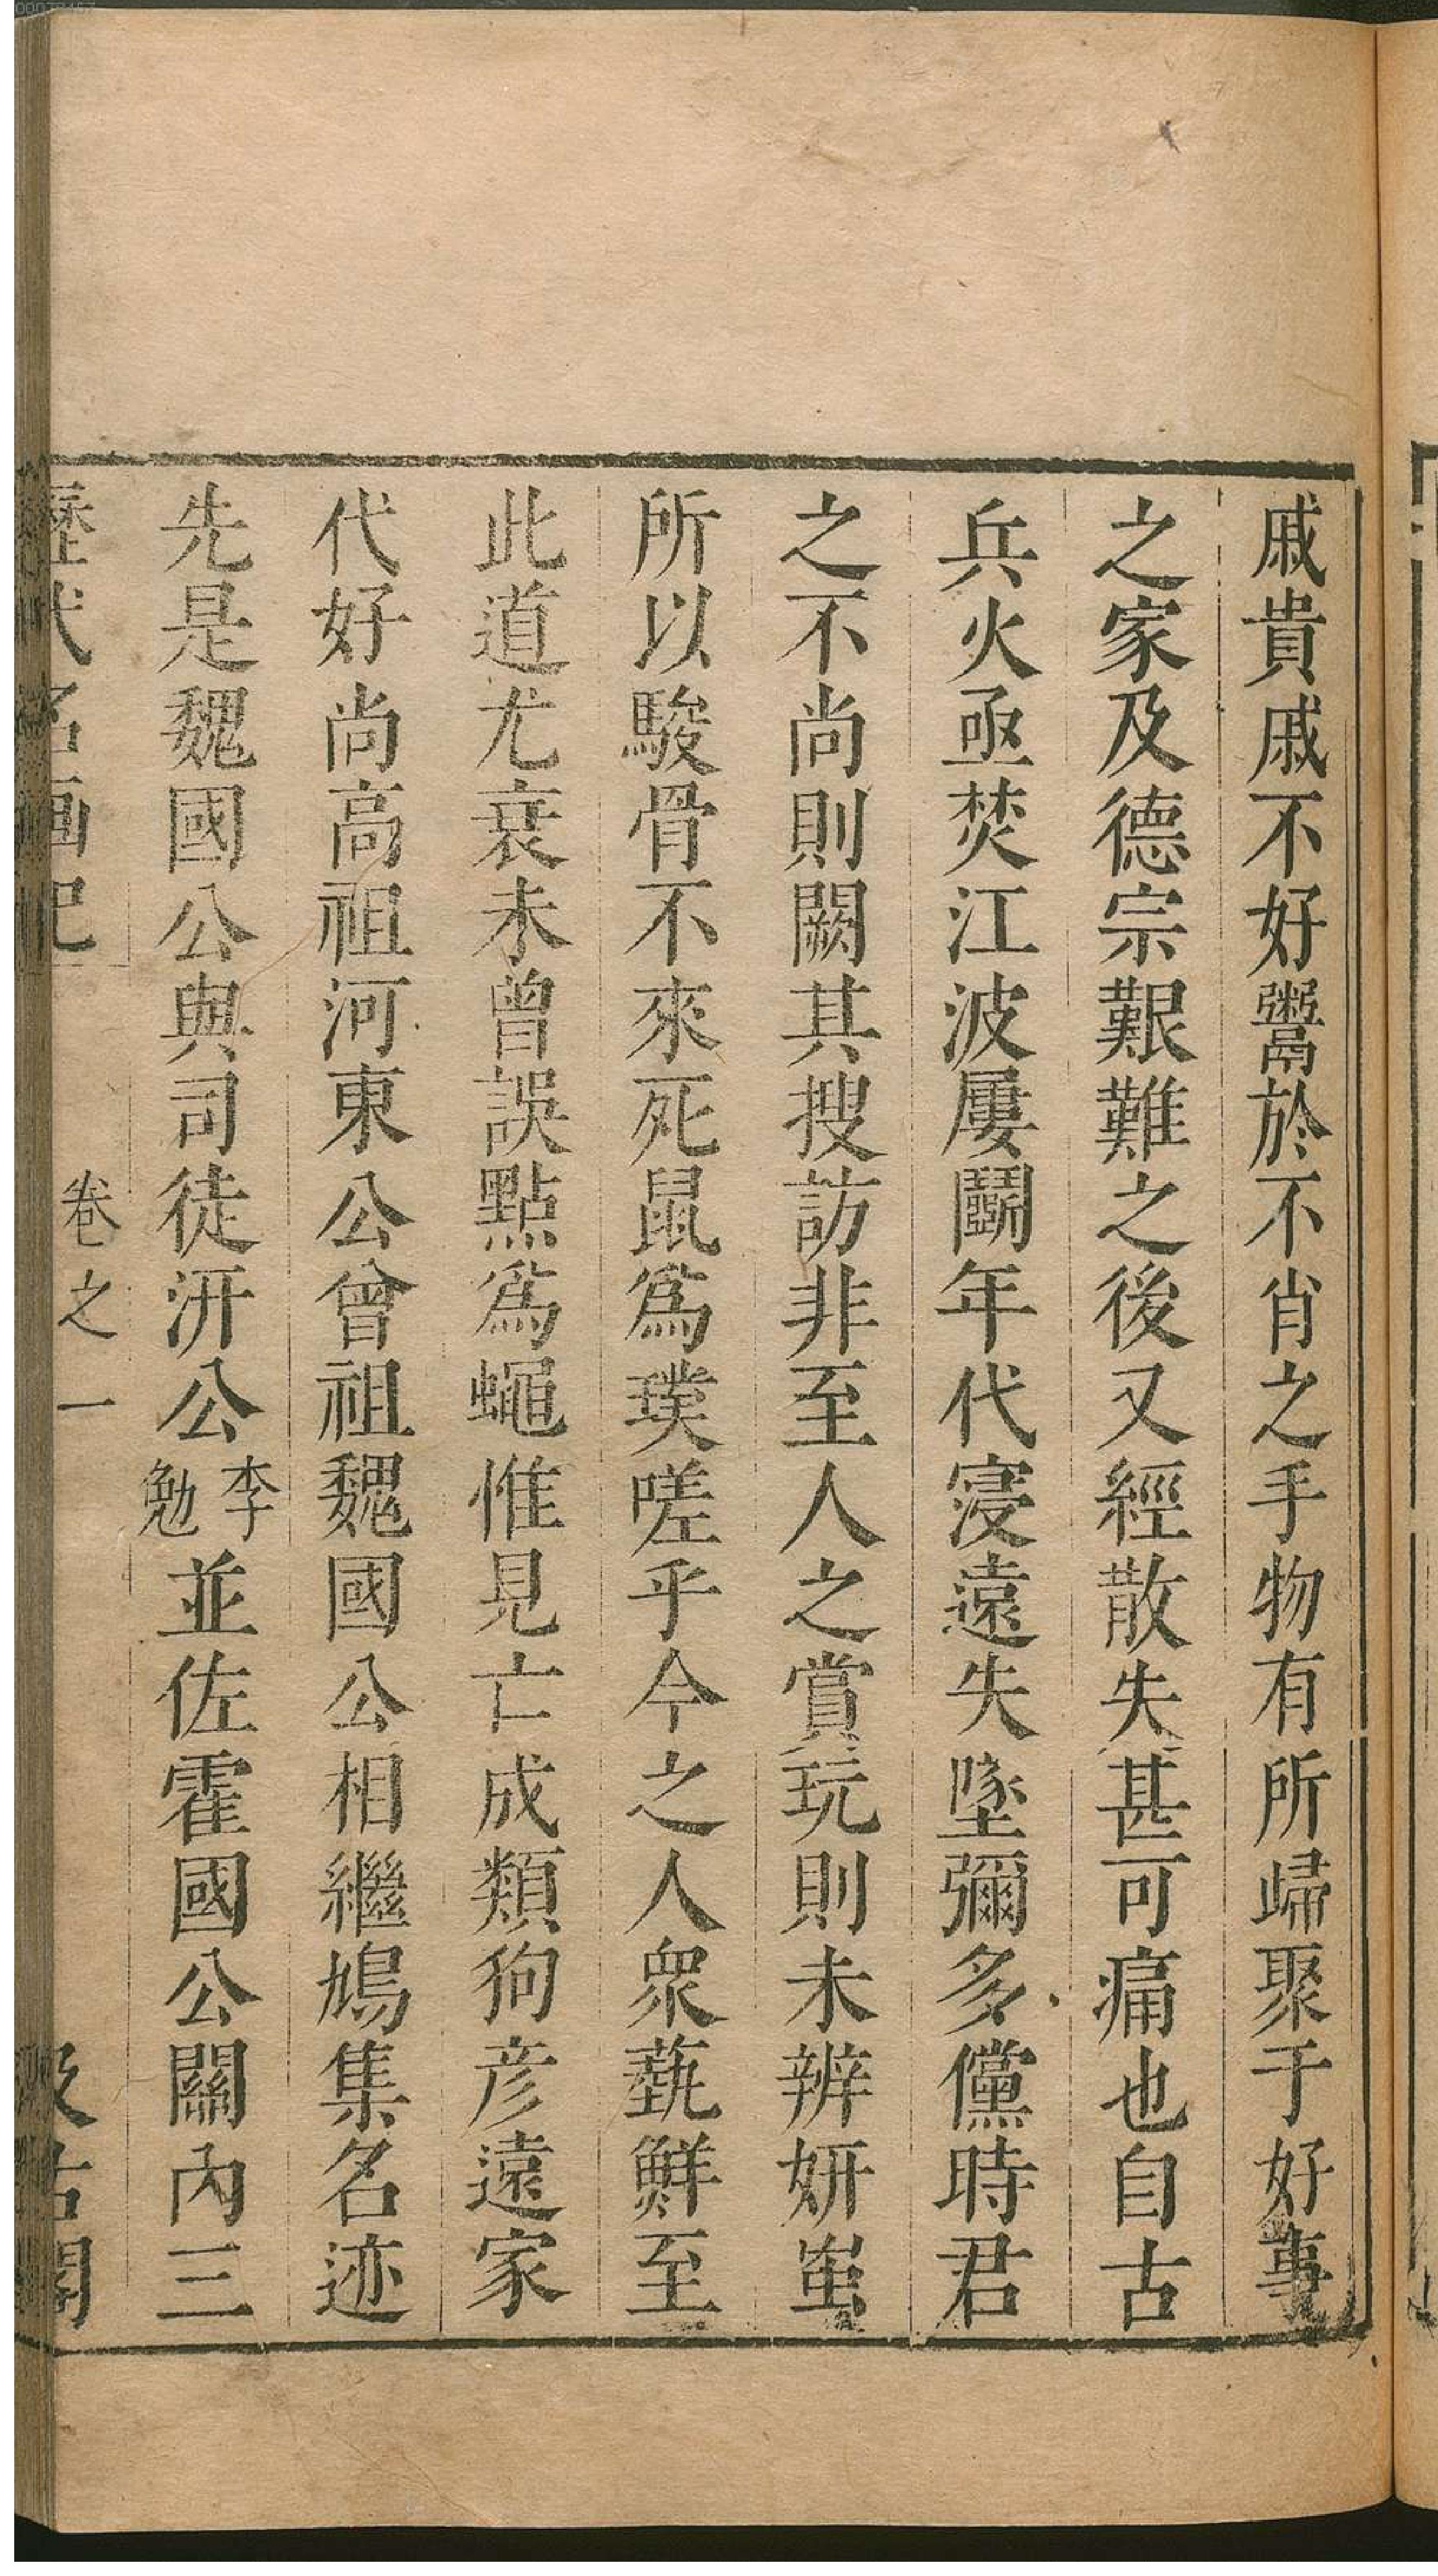 戚貴戚不好鬻於不肖之手物有所歸聚于好事
之家及德宗艱難之後又經散失甚可痛也自古
兵火亟焚江波屢鬭年代寖遠失墜彌多儻時君
之不尚則闕其搜訪非至人之賞玩則未辨妍蚩
所以駿骨不來死鼠為璞嗟乎今之人衆藝鮮至
此道尤衰未曾誤點為蠅惟見亡成類狗彦遠家
代好尚高祖河東公曾祖魏國公相繼鳩集名迹
先是魏國公與司徒汧公李勉並佐霍國公關內三
歷代名画記 卷之一 汲古閣